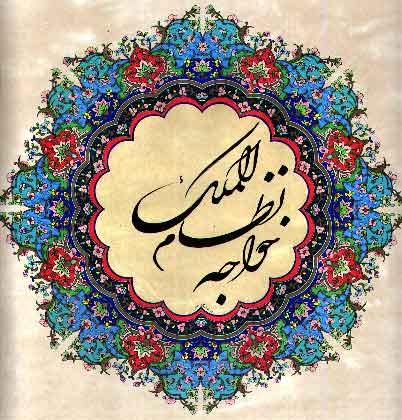 خواجه نظام الملک